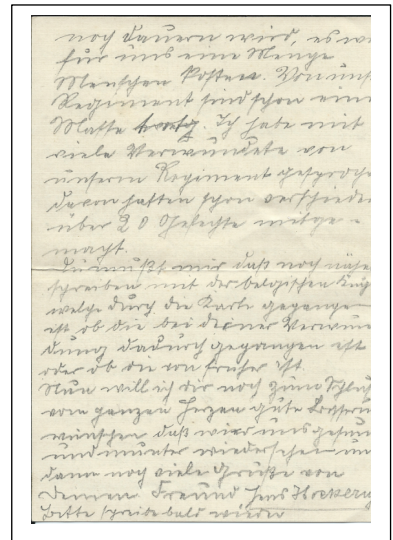 noch dauern wird, es wi
für uns eine Menge
Menschen kosten. Von uns
Regiment sind schon eine
Masse Ich habe mit
viele Verwundete von
unserm Regiment gesproche
davon hatten schon verschiede
über 20 Gefechte mitge-
macht.
Du mußt mir daß noch nähe
schreiben mit der belgischen Kug
welche durch die Karte gegange
ist ob die bei deiner Verwun
dung dadurch gegangen ist
oder ob die von früher ist.
Nun will ich dir noch zum Schluß
vom ganzen Herzen gute Besseru
wünschen daß wir uns gesun
und munter wiedersehen un
dann noch viele Grüße von
Deinem Freund Jens
Bitte schreibe bald wieder